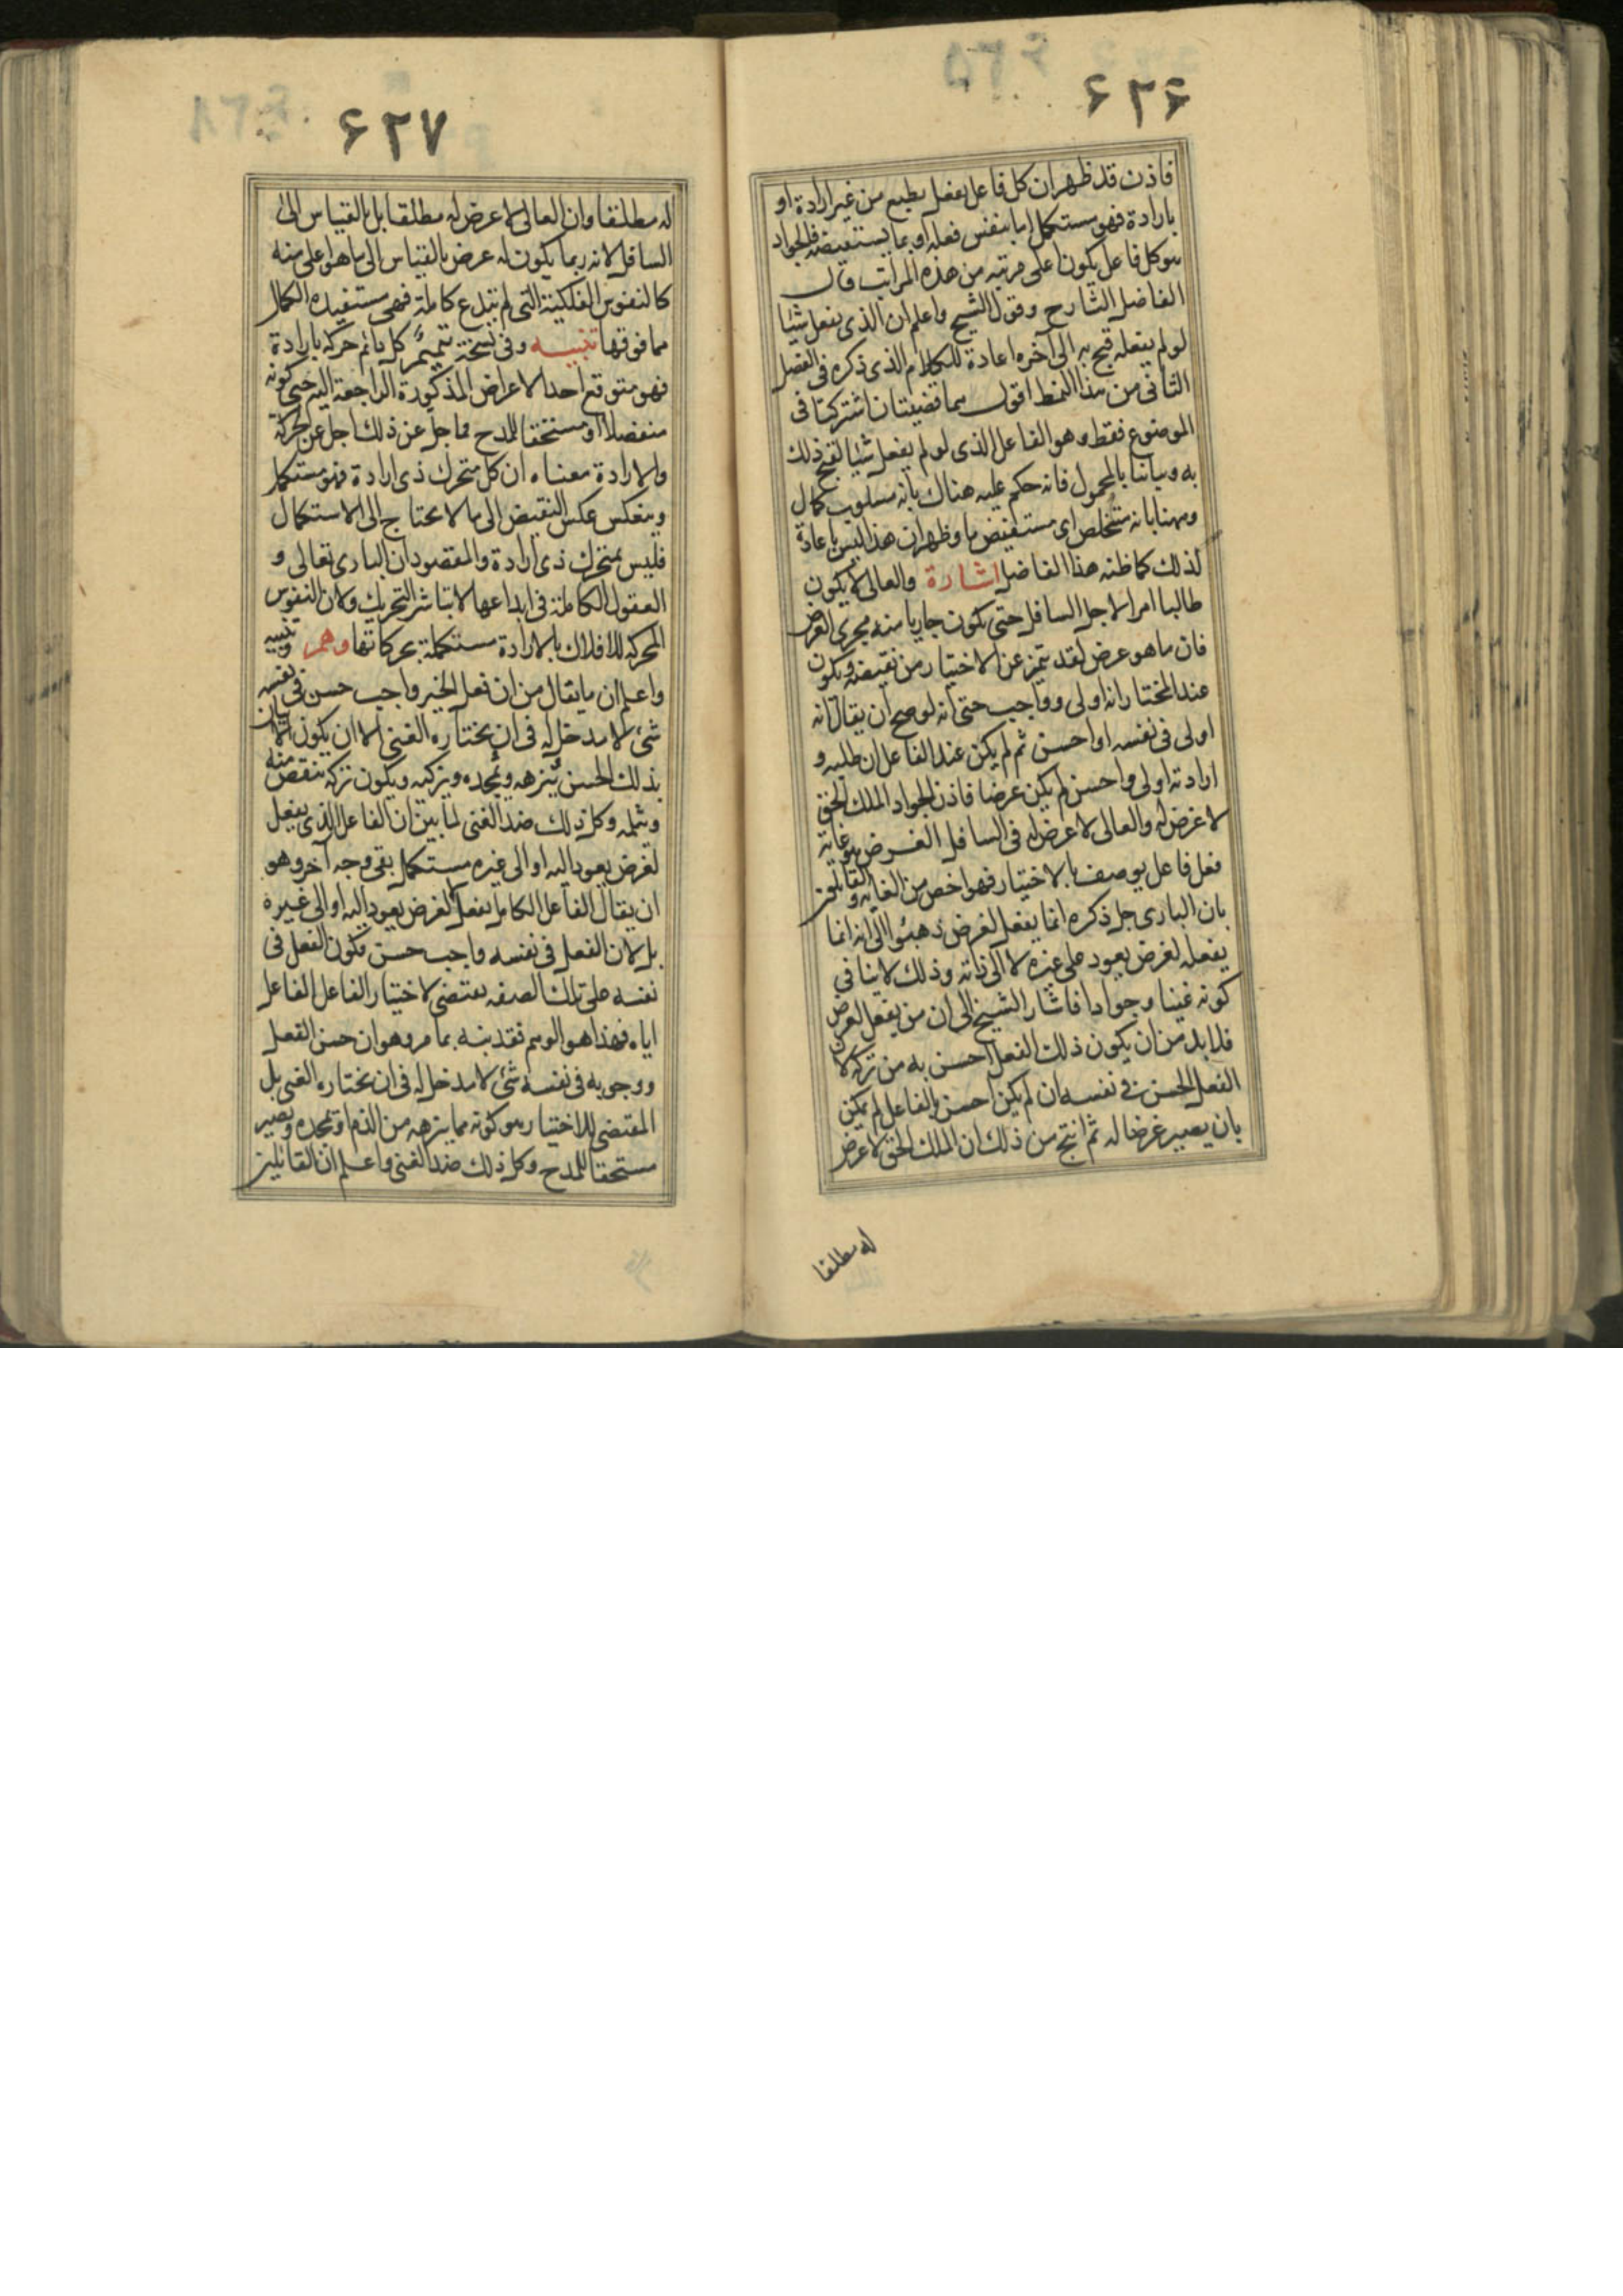 ۶۲۶
فاذن قد ظهر ان كل فاعل يفعل بطبع من غير ارادة او
بارادة فهو مستكمل اما بنفس فعله او بما يستفيضه فالجواد
هو كل فاعل يكون اعلى مرتبه من هذه المراتب قال
الفاضل الشارح وقول الشيخ واعلم ان الذى يفعل شيئا
لو لم يفعله قبح به الى آخره اعادة للكلام الذى ذكره فى الفصل
الثانى من هذا النمط اقول هما قضيتان اشتركتا فى
الموضوع فقط وهو الفاعل الذى لو لم يفعل شيئا لقبح ذلك
به وتباينتا بالمحمول فانه حكم عليه هناك بانه مسلوب كمال
وههنا بانه متخلص اى مستفيض ما وظهر ان هذا ليس باعادة
لذلك كما ظنه هذا الفاضل اشارة والعالى لا يكون
طالبا امرا لاجل السافل حتى يكون جاريا منه مجرى الغرض
فان ما هو غرض لقد يتميز عند الاختيار من نقيضه ويكون
عند المختار انه اولى وواجب حتى انه لو صح ان يقال انه
اولى فى نفسه او احسن ثم لم يكن عند الفاعل ان طلبه و
ارادته اولى واحسن لم يكن غرضا فاذن الجواد الملك الحق
لا غرض له والعالى لا غرض له فى السافل الغرض هو غاية
فعل فاعل يوصف بالاختيار فهو اخص من الغايه والقائلون
بان البارى جل ذكره انما يفعل لغرض ذهبوا الى انه انما
يفعله لغرض يعود على غيره لا الى ذاته وذلك لا ينافى
كونه غنيا وجوادا فاشار الشيخ الى ان من يفعل لغرض
فلا بد من ان يكون ذلك الفعل احسن به من تركه لان
الفعل الحسن فى نفسه ان لم يكن احسن بالفاعل لم يمكن
بان يصير غرضا له ثم انتج من ذلك ان الملك الحق لا غرض
له مطلقا
۶۲۷
له مطلقا وان العالى لا غرض له مطلقا بل بالقياس الى
السافل لانه ربما يكون له غرض بالقياس الى ما هو اعلى منه
كالنفوس الفلكية التى لم تبدع كاملة فهى مستفيدة الكمال
مما فوقها تنبيه وفى نسخة تتميم كل دائم حركه بارادة
فهو متوقع احد الاغراض المذكورة الراجعة اليه حتى كونه
متفضلا او مستحقا للمدح فما جل عن ذلك اجل عن الحركة
والارادة معناه ان كل متحرك ذى ارادة فهو مستكمل
وينعكس عكس النقيض الى ما لا يحتاج الى الاستكمال
فليس بمتحرك ذى ارادة والمقصود ان البارى تعالى و
العقول الكاملة فى ابداعها لا تباشر التحريك ولان النفوس
المحركه للافلاك بالارادة مستكملة بحركاتها وهم وتنبيه
واعلم ان ما يقال من ان فعل الخير واجب حسن فى نفسه
شئ لا مدخل له فى ان يختاره الغنى الا ان يكون الاتيان
بذلك الحسن ينزهه ويمجده ويزكيه ويكون تركه تنقص منه
وثلمه وكل ذلك ضد الغنى لما بين ان الفاعل الذى يفعل
لغرض يعود اليه او الى غيره مستكمل بقى وجه آخر وهو
ان يقال الفاعل الكامل يفعل لا لغرض يعود اليه او الى غيره
بل لان الفعل فى نفسه واجب حسن فكون الفعل فى
نفسه على تلك الصفه يقتضى لاختيار الفاعل الفاعل
اياه فهذا هو الوهم فقد نبه بما مر وهو ان حسن الفعل
ووجوبه فى نفسه شئ لا مدخل له فى ان يختاره الغنى بل
المقتضى للاختيار هو كونه مما ينزهه من الذم او يمجده ويصير
مستحقا للمدح وكل ذلك ضد الغنى واعلم ان القائلين